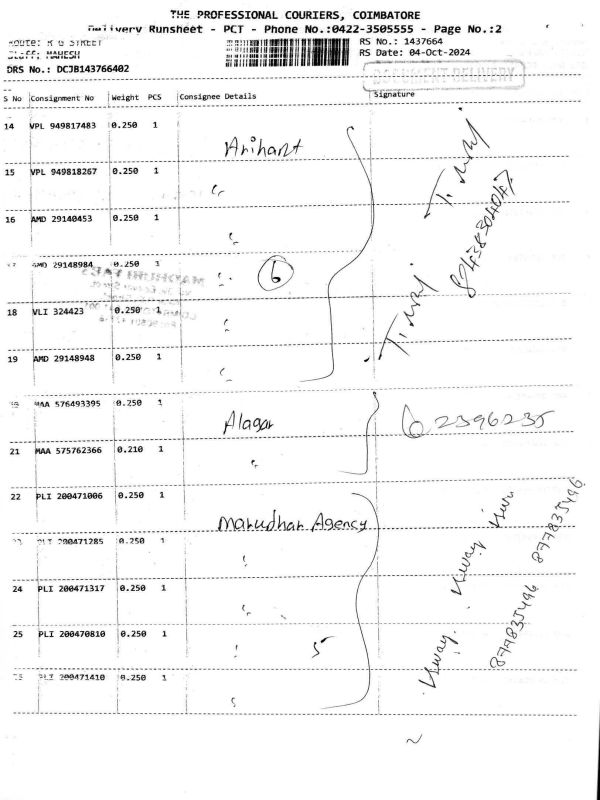 THE PROFESSIONAL COURIERS, COIMBATORE
Delivery Runsheet - PCT - Phone No.:0422-3505555 - Page No.:2
Route: R G STREET
RS No.: 1437664
Staff: MAHESH
RS Date: 04-Oct-2024
DRS No.: DCJB143766402
DOCUMENT DELIVERY
S No Consignment No Weight PCS Consignee Details Signature
14 VPL 949817483 0.250 1 Arihant
15 VPL 949818267 0.250 1 "
16 AMD 29140453 0.250 1 "
17 AMD 29148984 0.250 1 " 6
18 VLI 324423 0.250 1 "
19 AMD 29148948 0.250 1 "
8438304047
20 MAA 576493395 0.250 1 Alagar 6 2396235
21 MAA 575762366 0.210 1 "
22 PLI 200471006 0.250 1 Marudhar Agency
23 PLI 200471285 0.250 1 "
24 PLI 200471317 0.250 1 "
25 PLI 200470810 0.250 1 " 5
26 PLI 200471410 0.250 1 "
877835496
877835496